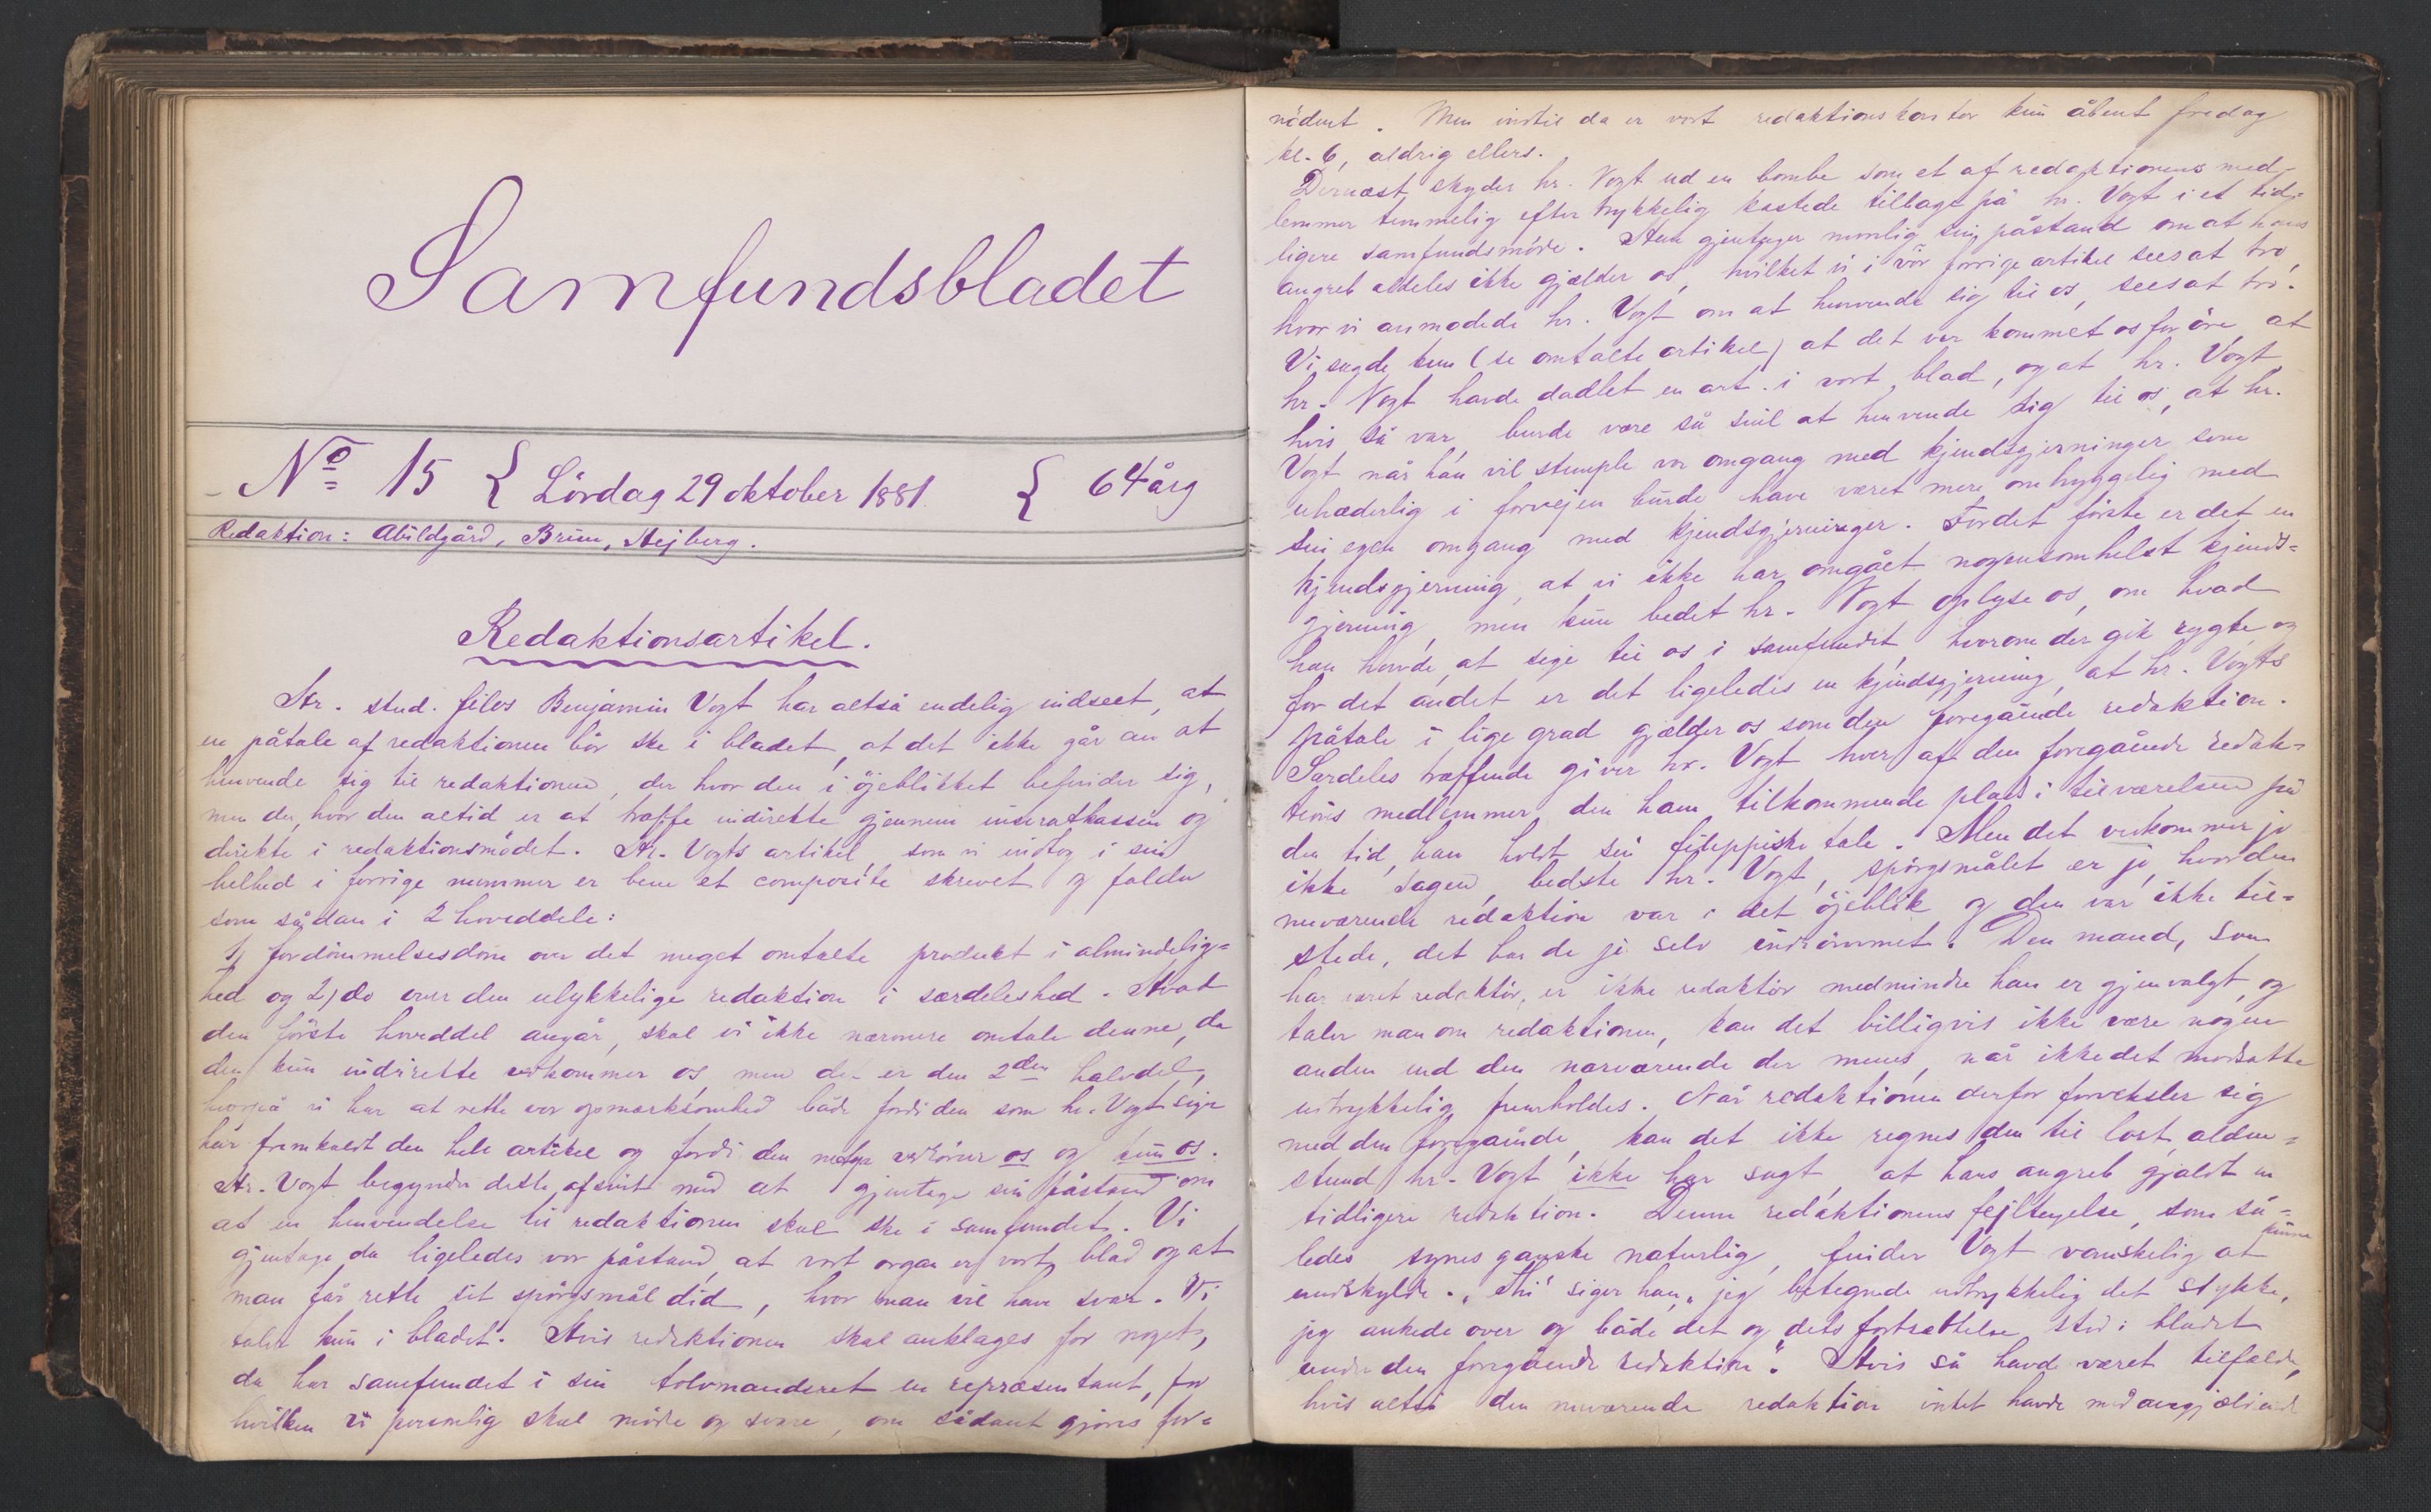 Samfundsbladet
No 15 { Lördag 29 oktober 1881. { 64 årg
Redaktion: Abildgård, Bruun, Hejberg.
Redaktionsartikel.
Hr. stud. filos Benjamin Vogt har altså endelig indseet, at
en påtale af redaktionen bör ske i bladet, at det ikke går an at
henvende sig til redaktionen, der hvor den i öjeblikket befinder sig,
men der, hvor den altid er at træffe indirekte gjennem inseratkassen og
direkte i redaktionsmödet. Hr. Vogts artikel, som vi indtog i sin
helhed i forrige nummer er bene et composite skrevet og falder
som sådan i 2 hoveddele:
1, fordömmelsesdom over det meget omtalte produkt i almindelig=
hed og 2, do over den ulykkelige redaktion i særdeleshed. Hvad
den förste hoveddel angår, skal vi ikke nærmere omtale denne, da
den kun indirekte vedkommer os, men det er den 2den halvdel,
hvorpå vi har at rette vor opmærksomhed både fordi den som hr. Vogt siger
har fremkaldt den hele artikel og fordi den netop vedrörer os og kun os.
Hr. Vogt begynder dette afsnit med at gjentage sin påstand om
at en henvendelse til redaktionen skal ske i samfundet. Vi
gjentage da ligeledes vor påstand, at vort organ er vort blad og at
man får rette sit spörgsmål did, hvor man vil have svar. Vi
taler kun i bladet. Hvis redaktionen skal anklages for noget,
da har samfundet i sin tolvmandsret en repræsentant, for
hvilken vi personlig skal möde og svare, om sådant gjöres for=
nödent. Men indtil da er vort redaktionskontor kun åbent fredag
kl. 6, aldrig ellers.
Dernæst skyder hr. Vogt ud en bombe som et af redaktionens med-
lemmer temmelig eftertrykkelig kastede tilbage på hr. Vogt i et tid=
ligere samfundsmöde. Han gjentager nemlig sin påstand om at hans
angreb aldeles ikke gjælder os, hvilket vi i vor forrige artikel sees at tro,
hvor vi anmodede hr. Vogt om at henvende sig til os, sees at tro.
Vi sagde kun (se omtalte artikel) at det var kommet os for öre, at
hr. Vogt havde dadlet en art. i vort blad, og at hr. Vogt,
hvis så var, burde være så snil at henvende sig til os, at hr.
Vogt når han vil stemple vor omgang med kjendsgjerninger som
uhæderlig i forvejen burde have været mere omhyggelig med
sin egen omgang med kjendsgjerninger. For det förste er det en
kjendsgjerning, at vi ikke har omgået nogensomhelst kjends=
gjerning, men kun bedet hr. Vogt oplyse os, om hvad
han havde at sige til os i samfundet hvorom der gik rygte og
for det andet er det ligeledes en kjendsgjerning, at hr. Vogts
påtale i lige grad gjælder os som den foregående redaktion.
Særdeles træffende giver hr. Vogt hver af den foregående redak=
tions medlemmer den ham tilkommende plads i tilværelsen på
den tid, han holdt sin filippiske tale. Men det vedkommer jo
ikke sagen, bedste hr. Vogt, spörgsmålet er jo, hvor den
nuværende redaktion var i det öjeblik og den var ikke til=
stede, det har de jo selv indrömmet. Den mand, som
har været redaktör, er ikke redaktör medmindre han er gjenvalgt, og
taler man om redaktionen, kan det billigvis ikke være nogen
anden end den nærværende der menes, når ikke det modsatte
udtrykkelig fremholdes. Når redaktionen derfor forveksler sig
med den foregående, kan det ikke regnes den til last, alden=
stund hr. Vogt ikke har sagt, at hans angreb gjaldt en
tidligere redaktion. Denne redaktionens fejltagelse, som så=
ledes synes ganske naturlig, finder Vogt vanskelig at kunne
undskylde. „Thi" siger han, „jeg betegnede udtrykkelig det stykke,
jeg ankede over og både det og dets fortsættelse stod i bladet
under den foregående redaktion". Hvis så havde været tilfælde,
hvis altså den nuværende redaktion intet havde med angjældende